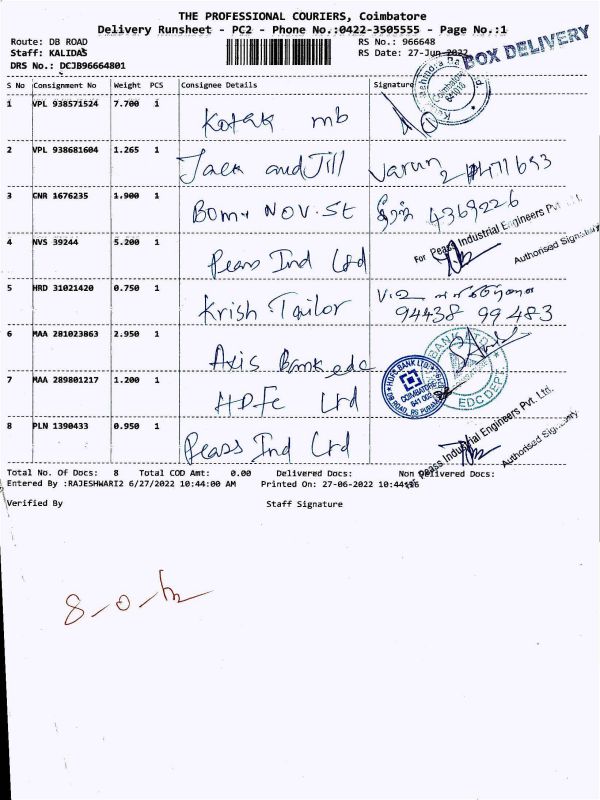 THE PROFESSIONAL COURIERS, Coimbatore
Delivery Runsheet - PC2 - Phone No.:0422-3505555 - Page No.:1
Route: DB ROAD
RS No.: 966648
Staff: KALIDAS
RS Date: 27-Jun-2022
BOX DELIVERY
DRS No.: DCJB96664801
S No Consignment No Weight PCS Consignee Details Signature
Coimbatore
1 VPL 938571524 7.700 1 Kotak mb
2 VPL 938681604 1.265 1 Jack and Jill Varun
3 CNR 1676235 1.900 1 Bomy NOV.St 4369226
4 NVS 39244 5.200 1 Peass Ind Ltd
For Peass Industrial Engineers Pvt. Ltd.
Authorised Signatory
5 HRD 31021420 0.750 1 Krish Tailor
94438 99483
6 MAA 281023863 2.950 1 Axis Bank edc
BANK LTD
EDC DEPT.
7 MAA 289801217 1.200 1 HDFC Ltd
HDFC BANK LTD
COIMBATORE
641 002
8 PLN 1390433 0.950 1 Peass Ind Ltd
Peass Industrial Engineers Pvt. Ltd.
Authorised Signatory
Total No. Of Docs: 8 Total COD Amt: 0.00 Delivered Docs: Non Delivered Docs:
Entered By :RAJESHWARI2 6/27/2022 10:44:00 AM Printed On: 27-06-2022 10:44
Verified By Staff Signature